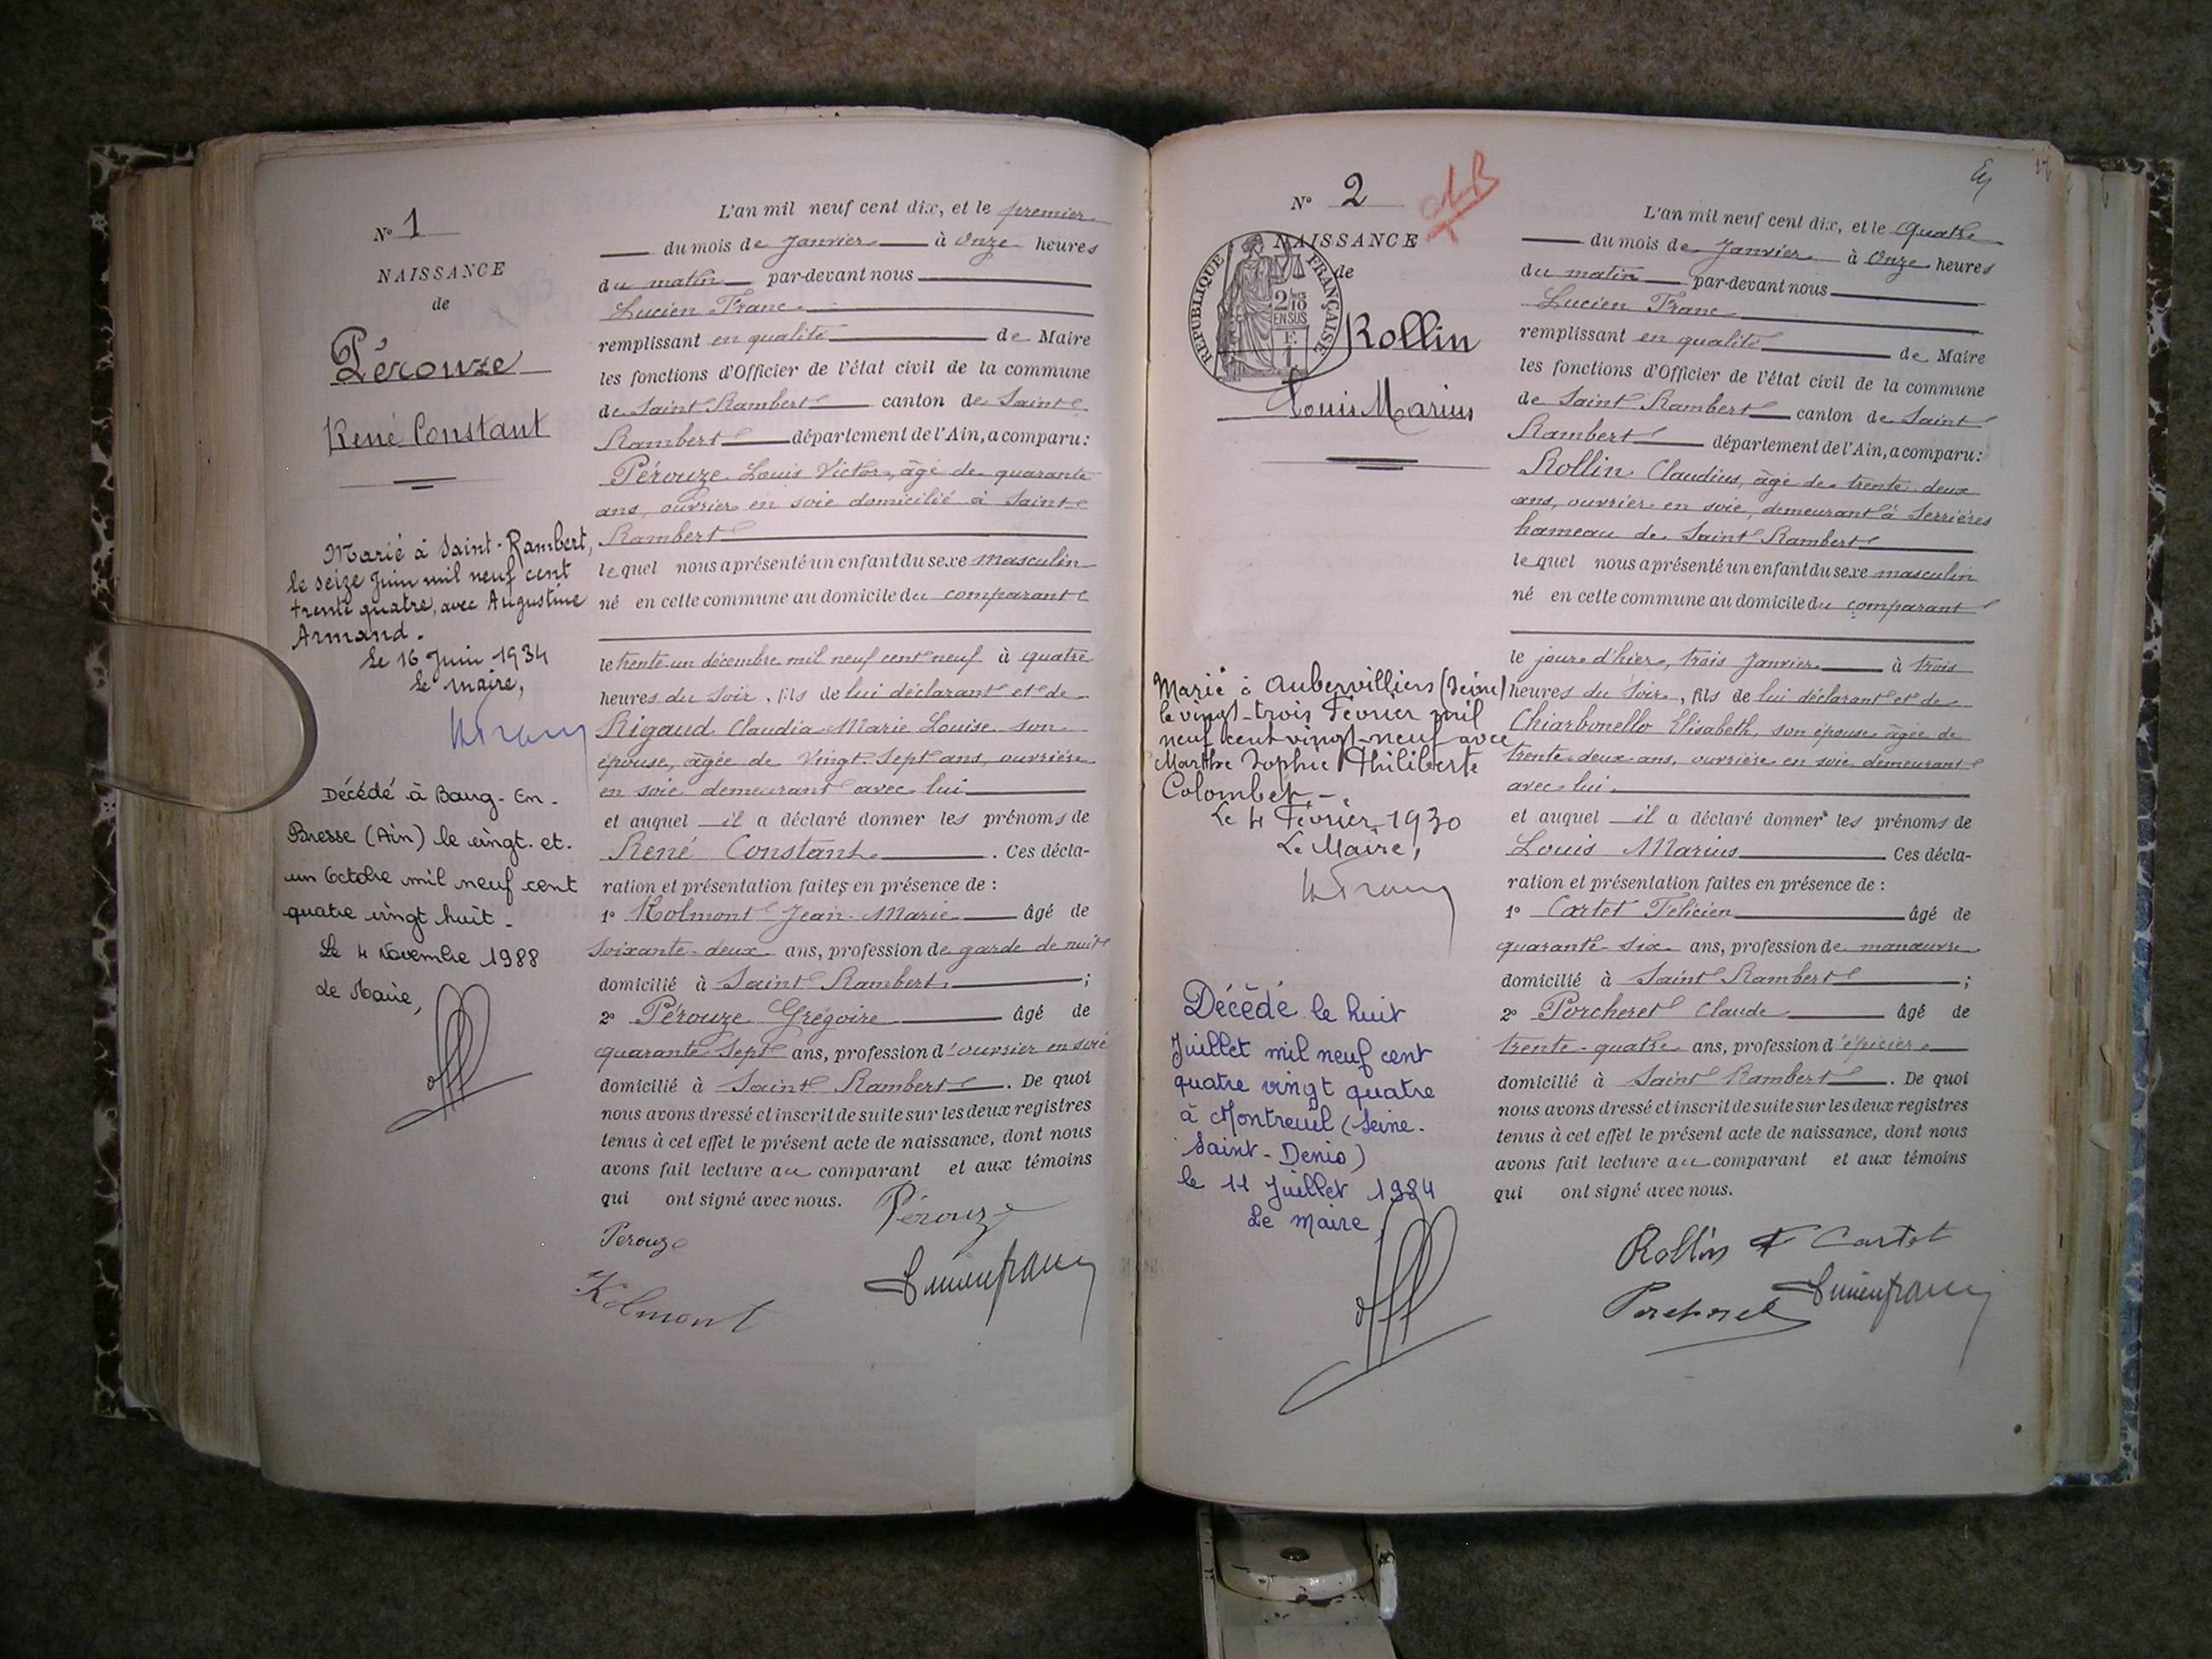 N° 1
NAISSANCE
de
Pérouze
René Constant
Marié à Saint-Rambert,
le seize Juin mil neuf cent
trente quatre, avec Augustine
Armand.
Le 16 Juin 1934
Le Maire,
Décédé à Bourg-En-
Bresse (Ain) le vingt-et-
un Octobre mil neuf cent
quatre vingt huit.
Le 4 Novembre 1988
Le Maire,
L'an mil neuf cent dix, et le premier
du mois de Janvier à Onze heures
du matin par-devant nous
Lucien Franc
remplissant en qualité de Maire
les fonctions d'Officier de l'état civil de la commune
de Saint Rambert canton de Saint
Rambert département de l'Ain, a comparu:
Pérouze Louis Victor, âgé de quarante
ans, ouvrier en soie domicilié à Saint
Rambert
lequel nous a présenté un enfant du sexe masculin
né en cette commune au domicile du comparant
le trente-un décembre mil neuf cent neuf à quatre
heures du soir, fils de lui déclarant et de
Rigaud Claudia Marie Louise son
épouse, âgée de Vingt-Sept ans, ouvrière
en soie demeurant avec lui
et auquel il a déclaré donner les prénoms de
René Constant. Ces décla-
ration et présentation faites en présence de :
1° Kolmont Jean-Marie âgé de
soixante-deux ans, profession de garde de nuit
domicilié à Saint Rambert ;
2° Pérouze Grégoire âgé de
quarante Sept ans, profession d'ouvrier en soie
domicilié à Saint Rambert. De quoi
nous avons dressé et inscrit de suite sur les deux registres
tenus à cet effet le présent acte de naissance, dont nous
avons fait lecture au comparant et aux témoins
qui ont signé avec nous. Pérouze
Perouze
Kolmont
Lucien Franc
N° 2
NAISSANCE
de
RÉPUBLIQUE FRANÇAISE
2/10 EN SUS
Rollin
Louis Marius
Marié à Aubervilliers (Seine)
le vingt-trois Février mil
neuf cent vingt-neuf avec
Marthe Sophie Philiberte
Colombet.
Le 4 Février 1930
Le Maire,
Décédé le huit
Juillet mil neuf cent
quatre vingt quatre
à Montreuil (Seine-
Saint-Denis)
le 11 Juillet 1984
Le maire,
L'an mil neuf cent dix, et le Quatre
du mois de Janvier à Onze heures
du matin par-devant nous
Lucien Franc
remplissant en qualité de Maire
les fonctions d'Officier de l'état civil de la commune
de Saint Rambert canton de Saint
Rambert département de l'Ain, a comparu:
Rollin Claudius, âgé de trente deux
ans, ouvrier en soie, demeurant à Serrières
hameau de Saint Rambert
lequel nous a présenté un enfant du sexe masculin
né en cette commune au domicile du comparant
le jour d'hier, trois Janvier à trois
heures du soir, fils de lui déclarant et de
Chiarbonello Elisabeth, son épouse âgée de
trente-deux ans, ouvrière en soie, demeurant
avec lui.
et auquel il a déclaré donner les prénoms de
Louis Marius Ces décla-
ration et présentation faites en présence de :
1° Cartet Félicien âgé de
quarante-six ans, profession de manœuvre
domicilié à Saint Rambert ;
2° Porcheret Claude âgé de
trente-quatre ans, profession d'épicier
domicilié à Saint Rambert. De quoi
nous avons dressé et inscrit de suite sur les deux registres
tenus à cet effet le présent acte de naissance, dont nous
avons fait lecture au comparant et aux témoins
qui ont signé avec nous.
Rollin F Cartet
Porcheret Lucien Franc